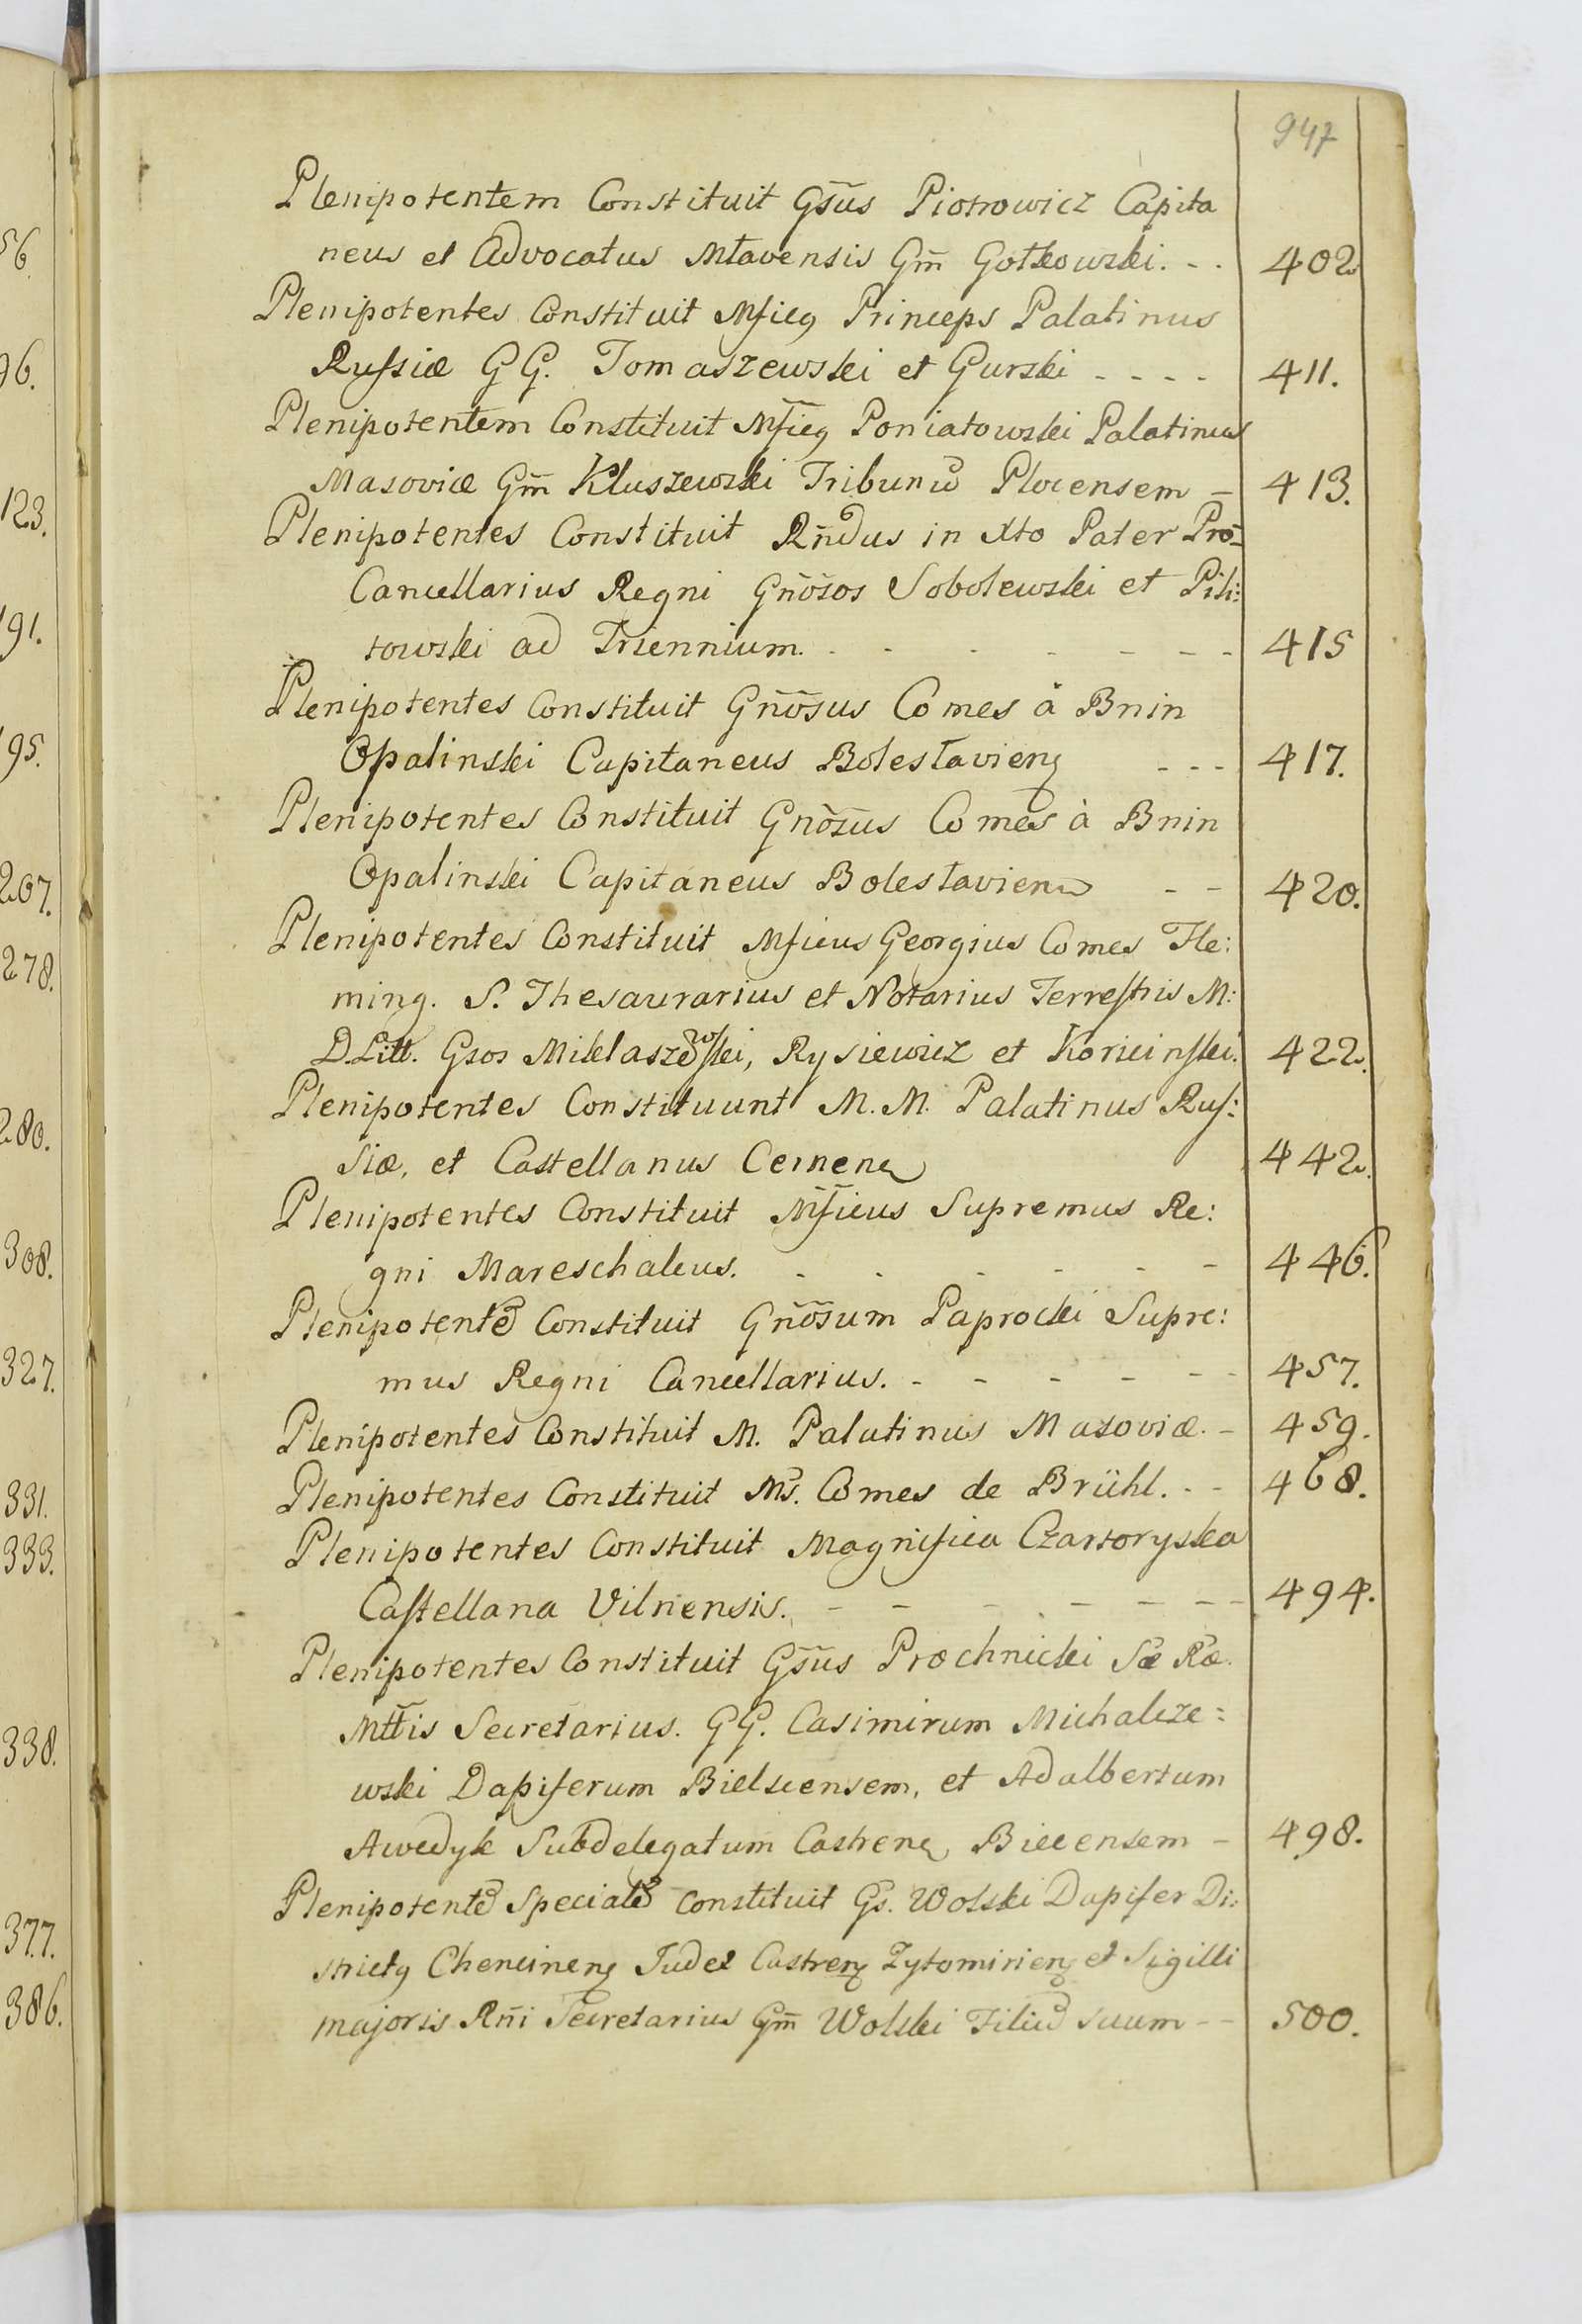 947
Plenipotentem Constituit Gs̃us Piotrowicz Capita
neus et Advocatus Mławensis Gm̃ Gotkowski. - . 402
Plenipotentes Constituit Mficq Princeps Palatinus
Russiæ GG. Tomaszewski et Gurski - - - - 411.
Plenipotentem Constituit Mf̃icq Poniatowski Palatinus
Masoviæ Gm̃ Kluszewski Tribunũ Plocensem - 413.
Plenipotentes Constituit Rñdus in Xto Pater Prō=
Cancellarius Regni Gñõsos Sobolewski et Pili:
towski ad Triennium. - - - - - - 415
Plenipotentes Constituit Gñõsus Comes à Bnin
Opalinski Capitaneus Bolesłavienq - - - 417.
Plenipotentes Constituit Gñõsus Comes à Bnin
Opalinski Capitaneus Bolesłavienq - - 420.
Plenipotentes Constituit Mficus Georgius Comes Fle:
ming. S. Thesaurarius et Notarius Terrestris M:
D. Litt. Gsos Miklaszewski, Rysiewicz et Koricinski. 422.
Plenipotentes Constituunt M. M. Palatinus Rus:
siæ, et Castellanus Cernenq 442.
Plenipotentes Constituit Mf̃icus Supremus Re:
gni Mareschalcus. - - - - - - 446.
Plenipotentẽ Constituit Gñõsum Paprocki Supre:
mus Regni Cancellarius. - - - - - - 457.
Plenipotentes Constituit M. Palatinus Masoviæ. - 459.
Plenipotentes Constituit Ms. Comes de Brühl. - - 468.
Plenipotentes Constituit Magnifica Czartoryska
Castellana Vilnensis. - - - - - - - 494.
Plenipotentes Constituit Gs̃us Prochnicki Sæ Ræ.
Mttis Secretarius. GG. Casimirum Michalcze=
wski Dapiferum Bielscensem, et Adalbertum
Awedyk Subdelegatum Castrenq Biecensem - 498.
Plenipotentẽ Specialẽ constituit Gs. Wolski Dapifer Di:
strictq Chencinenq Judex Castrenq Zytomirienq et Sigilli
majoris Rñi Secretarius Gm̃ Wolski Filiũ suum - - 500.
56.
96.
123.
191.
195.
207.
278.
280.
308.
327.
331.
333.
338.
377.
386.